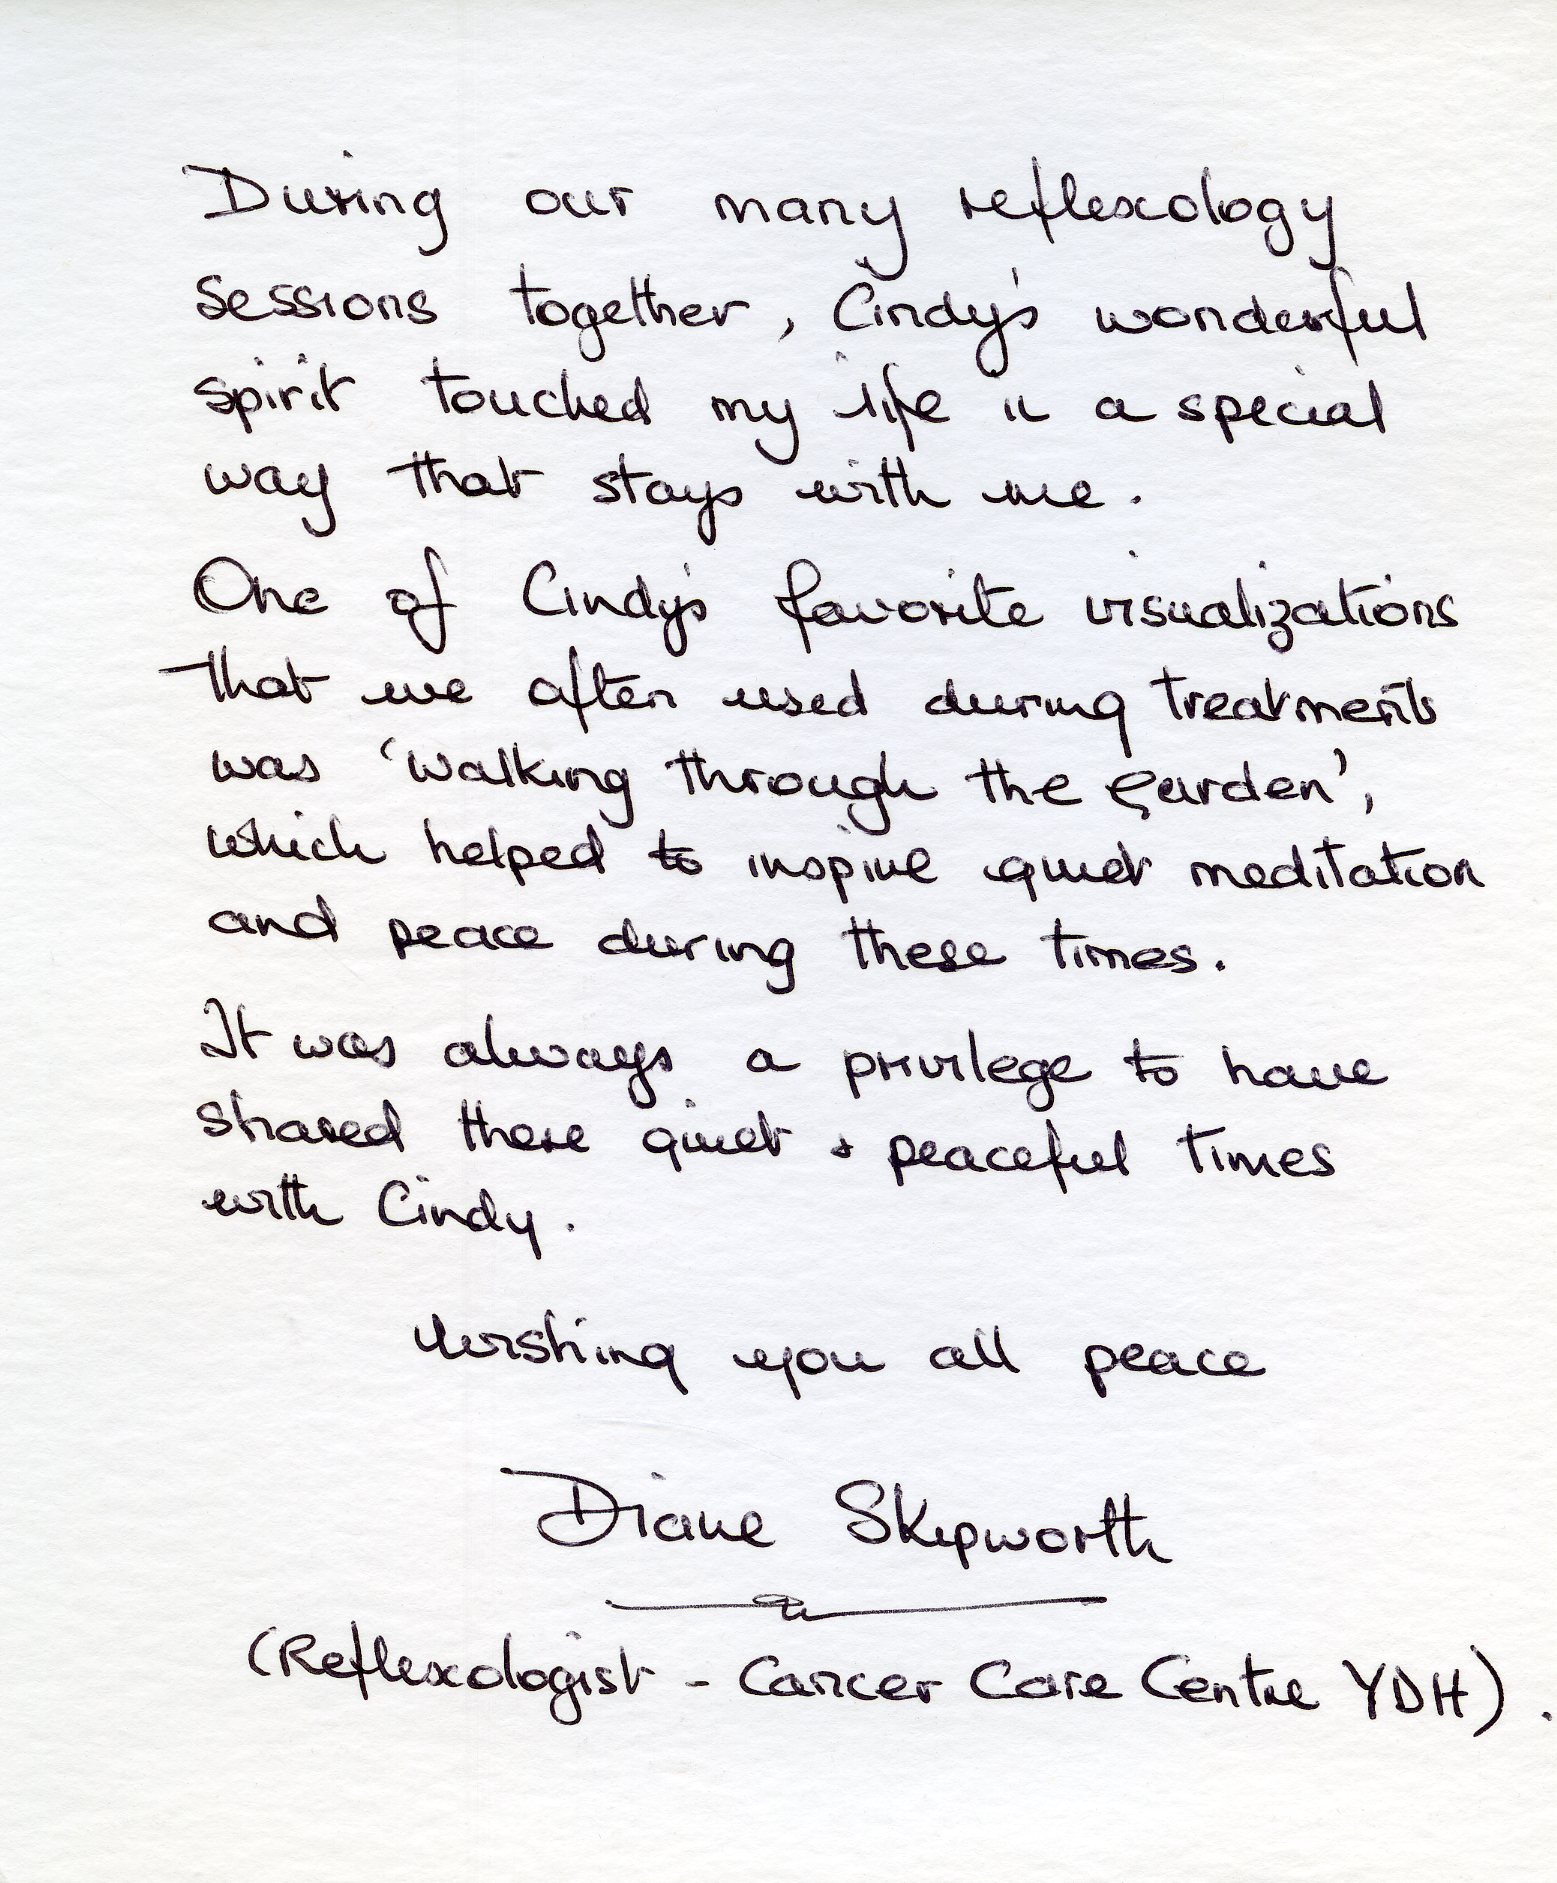 During our many reflexology
sessions together, Cindy's wonderful
spirit touched my life in a special
way that stays with me.
One of Cindy's favorite visualizations
that we often used during treatments
was 'walking through the garden',
which helped to inspire quiet meditation
and peace during these times.
It was always a privilege to have
shared these quiet & peaceful times
with Cindy.
Wishing you all peace
Diane Skipworth
(Reflexologist - Cancer Care Centre YDH).